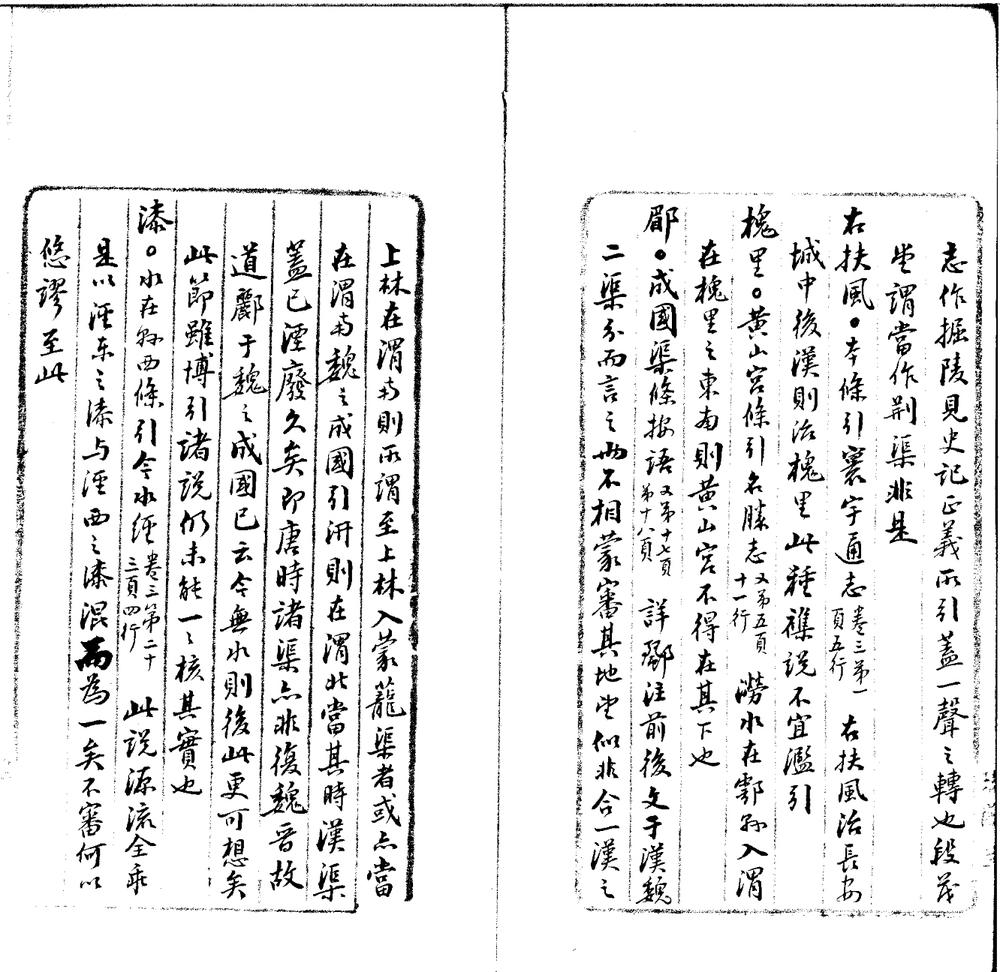 志作掘陵見史記正義所引蓋一聲之轉也段茂
堂謂當作荆渠非是
右扶風。本條引寰宇通志卷三第一頁五行 右扶風治長安
城中後漢則治槐里此種襍說不宜濫引
槐里。黃山宮條引名勝志又第五頁十一行 澇水在鄠縣入渭
在槐里之東南則黃山宮不得在其下也
郿。成國渠條按語又第十七頁第十八頁 詳酈注前後文于漢魏
二渠分而言之尚不相蒙審其地望似非合一漢之
上林在渭南則所謂至上林入蒙蘢渠者或亦當
在渭南魏之成國引汧則在渭北當其時漢渠
蓋已湮廢久矣即唐時諸渠亦非復魏晉故
道酈于魏之成國已云今無水則後此更可想矣
此節雖博引諸說仍未能一〻核其實也
漆。水在縣西條引今水經卷三第二十三頁四行 此說源流全乖
是以涇東之漆与涇西之漆混而為一矣不審何以
悠謬至此